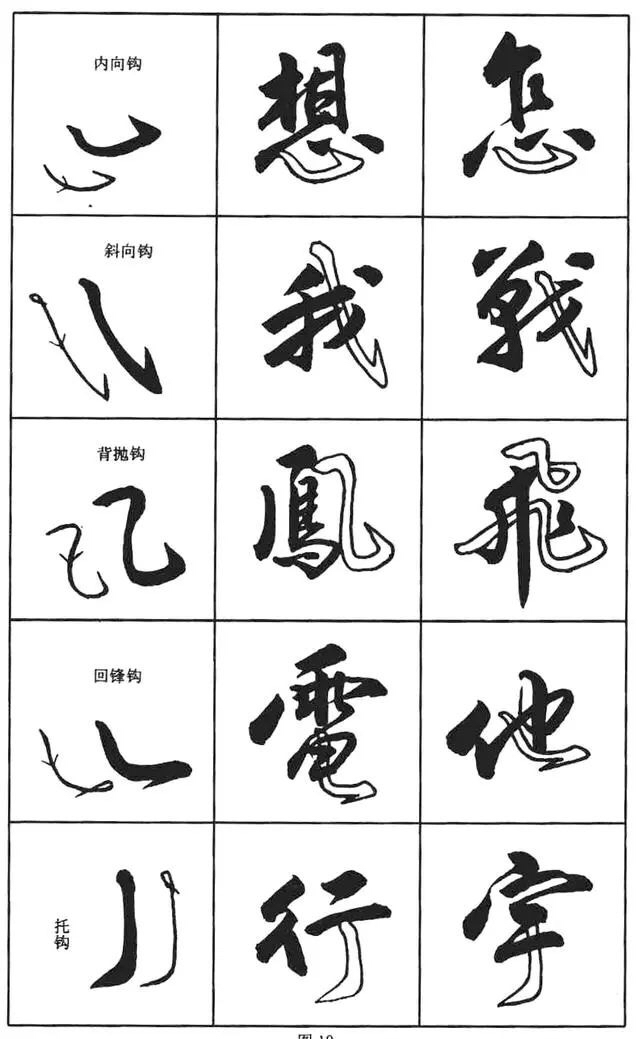 内向钩
想
怎
斜向钩
我
戰
背抛钩
鳳
飛
回锋钩
電
他
托钩
行
宇
图 10